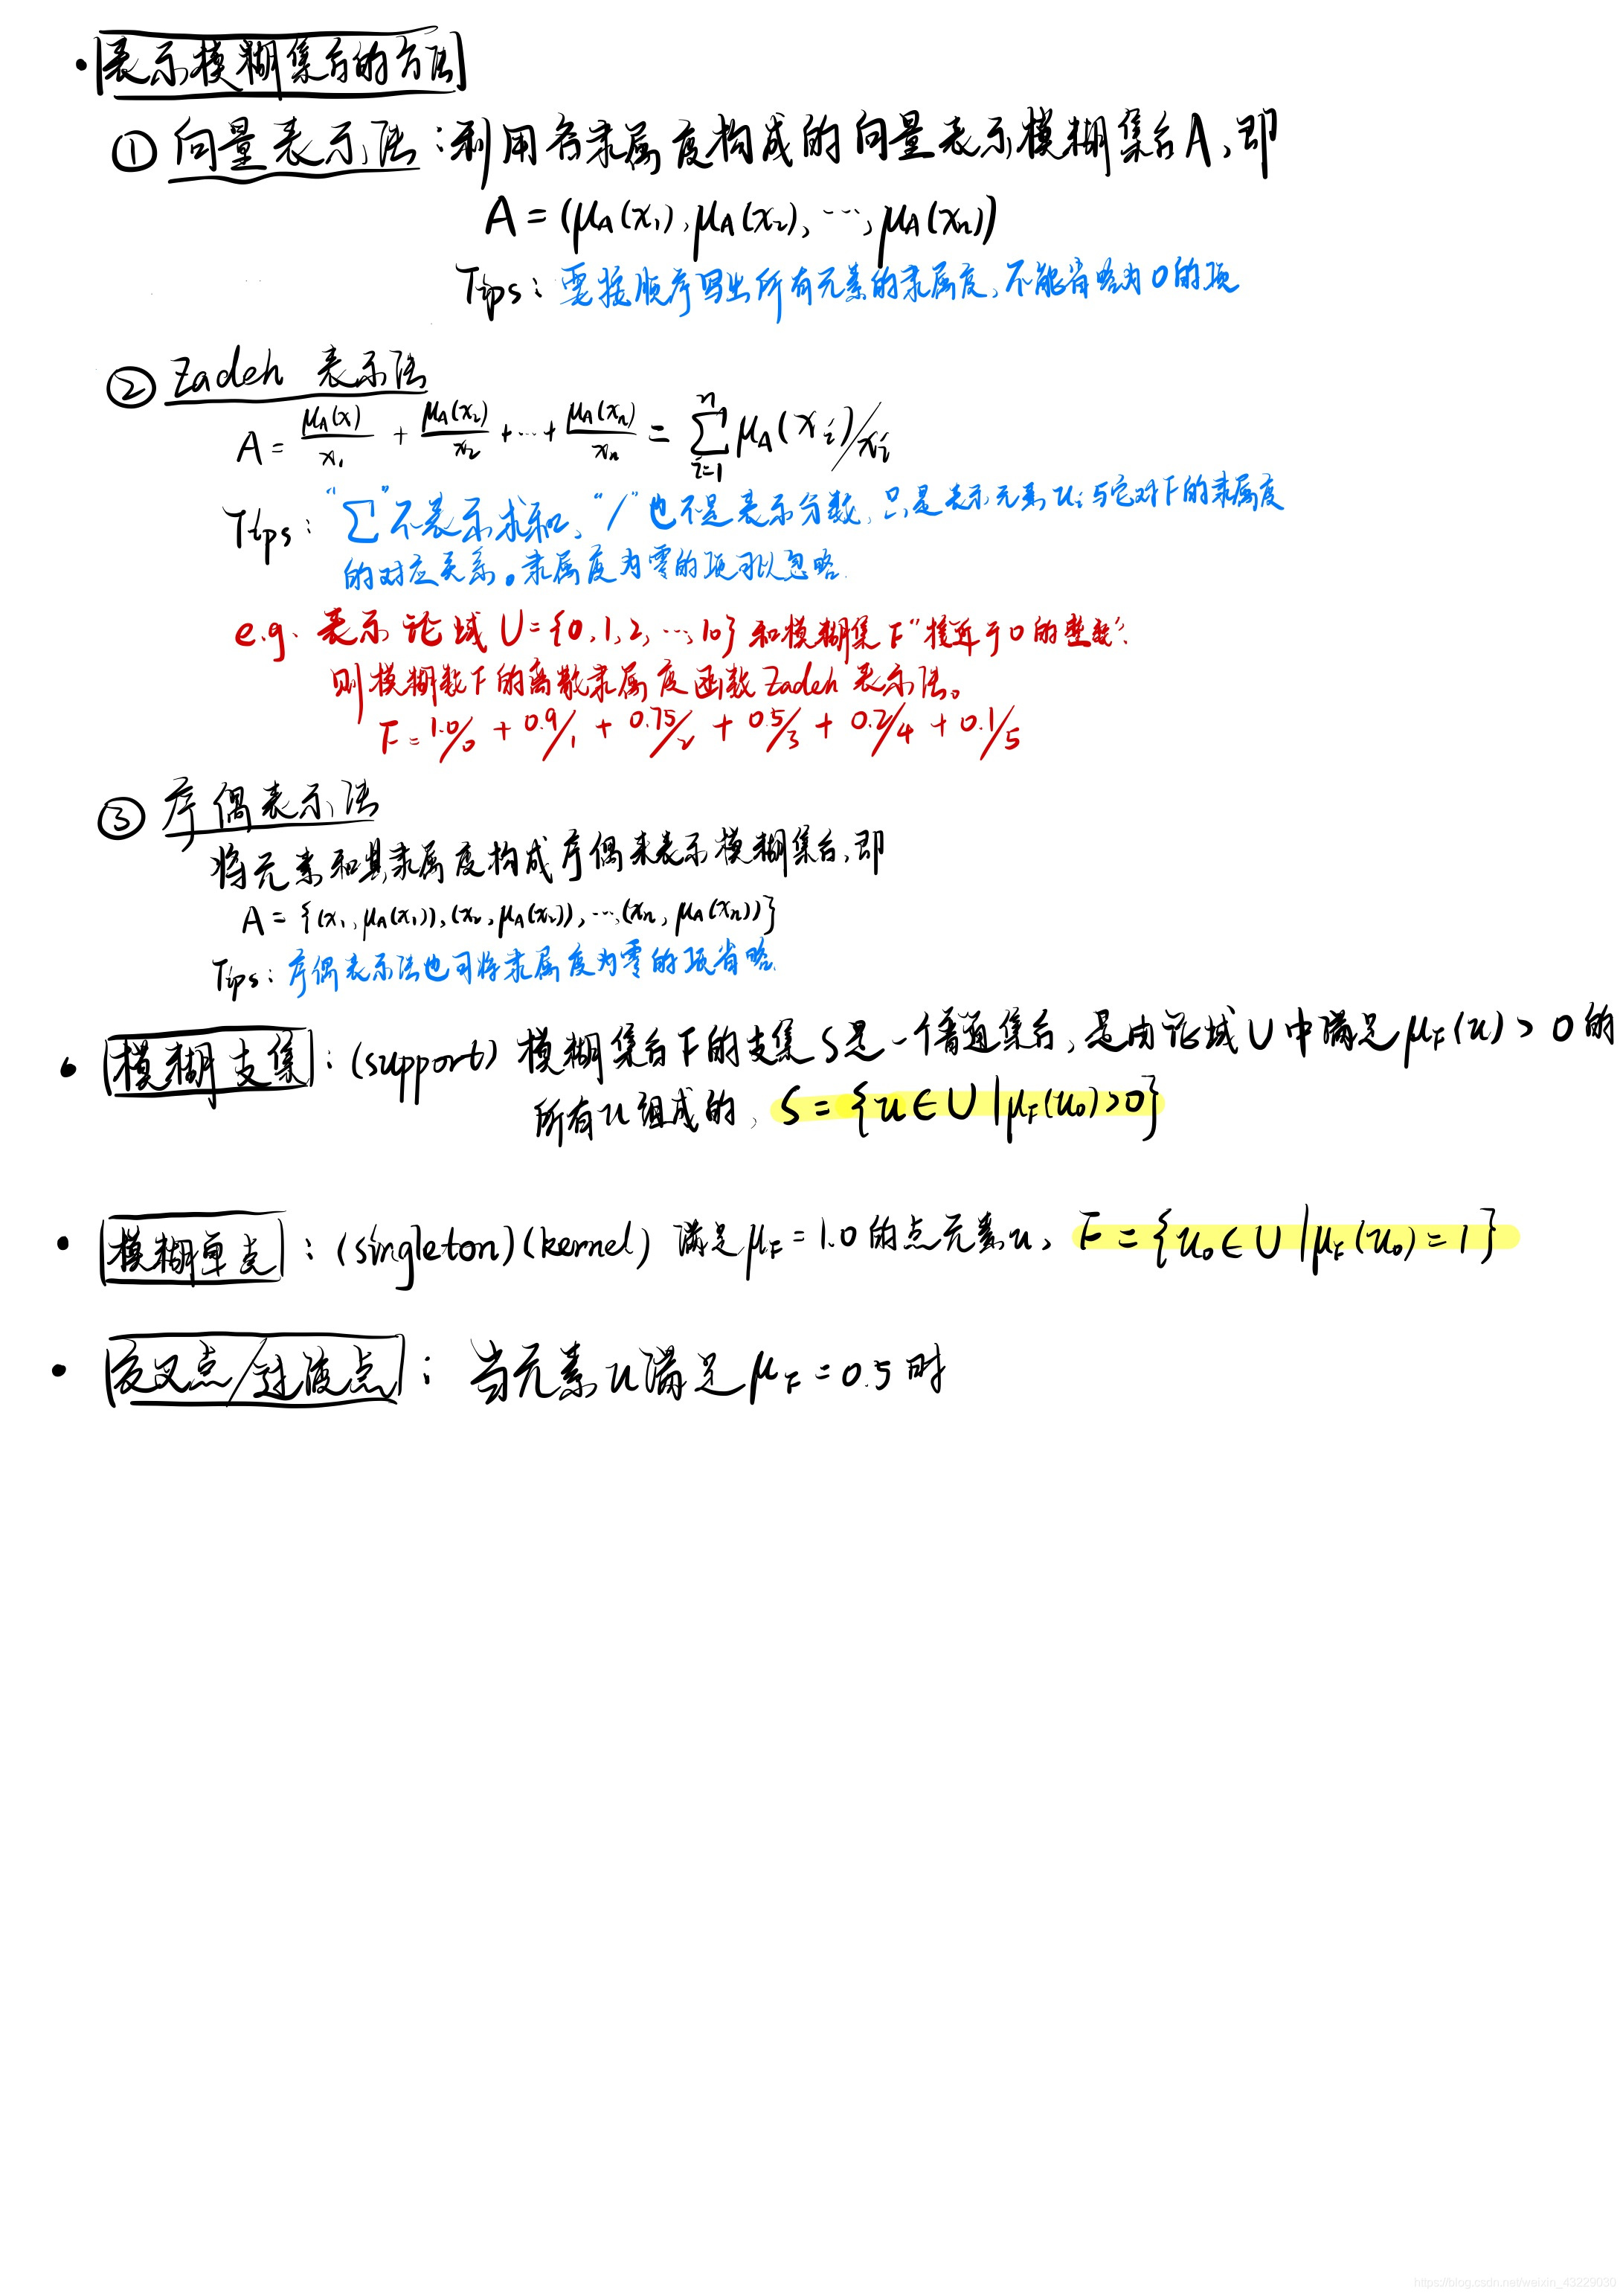 ·表示模糊集合的方法
① 向量表示法：利用各隶属度构成的向量表示模糊集合A，即
A = (μA(x₁), μA(x₂), …, μA(xn))
Tips：要按顺序写出所有元素的隶属度，不能省略为0的项
② Zadeh 表示法
A = μA(x)/x₁ + μA(x₂)/x₂ + … + μA(xn)/xn = ∑ⁿᵢ₌₁ μA(xi)/xi
Tips：“∑”不表示求和，“/”也不是表示分数，只是表示元素ui与它对F的隶属度
的对应关系。隶属度为零的项可以忽略.
e.g. 表示论域U={0,1,2,…,10}和模糊集F“接近于0的整数”.
则模糊数F的离散隶属度函数Zadeh表示法。
F = 1.0/0 + 0.9/1 + 0.75/2 + 0.5/3 + 0.2/4 + 0.1/5
③ 序偶表示法
将元素和其隶属度构成序偶来表示模糊集合，即
A = {(x₁, μA(x₁)), (x₂, μA(x₂)), …, (xn, μA(xn))}
Tips：序偶表示法也可将隶属度为零的项省略.
• 模糊支集：(support) 模糊集合F的支集S是一个普通集合，是由论域U中满足μF(u) > 0的
所有u组成的，S = {u∈U | μF(u₀)>0}
• 模糊单点：(singleton)(kernel) 满足μF = 1.0的点元素u，F = {u₀∈U | μF(u₀) = 1}
• 交叉点/过渡点：当元素u满足μF = 0.5时
https://blog.csdn.net/weixin_43229030